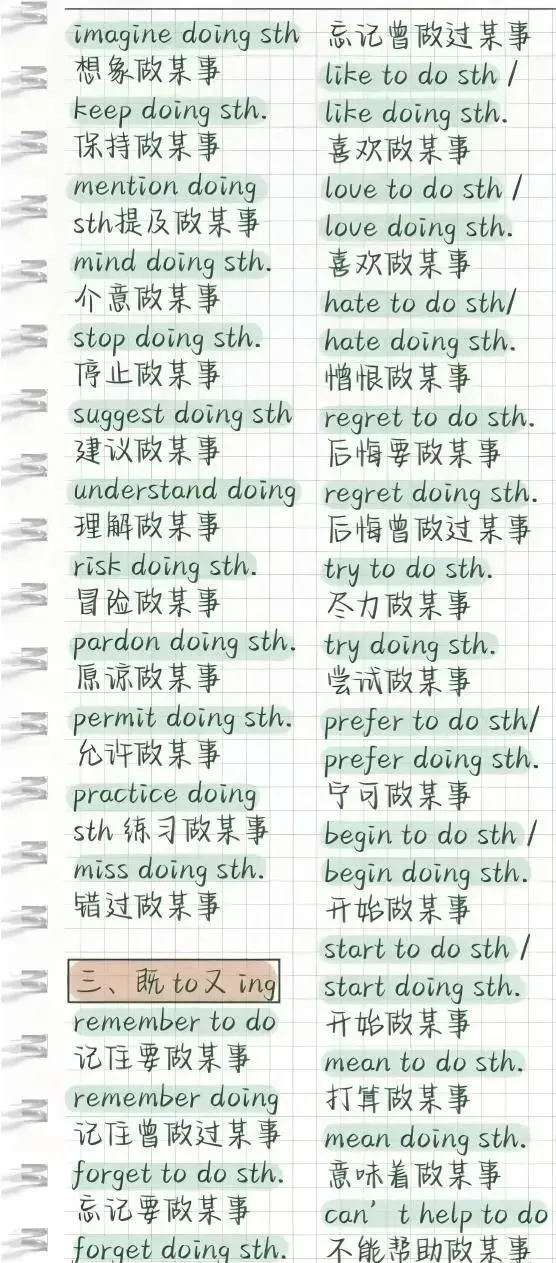 imagine doing sth
想象做某事
keep doing sth.
保持做某事
mention doing
sth提及做某事
mind doing sth.
介意做某事
stop doing sth.
停止做某事
suggest doing sth
建议做某事
understand doing
理解做某事
risk doing sth.
冒险做某事
pardon doing sth.
原谅做某事
permit doing sth.
允许做某事
practice doing
sth 练习做某事
miss doing sth.
错过做某事
三、既 to 又 ing
remember to do
记住要做某事
remember doing
记住曾做过某事
forget to do sth.
忘记要做某事
forget doing sth.
忘记曾做过某事
like to do sth /
like doing sth.
喜欢做某事
love to do sth /
love doing sth.
喜欢做某事
hate to do sth/
hate doing sth.
憎恨做某事
regret to do sth.
后悔要做某事
regret doing sth.
后悔曾做过某事
try to do sth.
尽力做某事
try doing sth.
尝试做某事
prefer to do sth/
prefer doing sth.
宁可做某事
begin to do sth /
begin doing sth.
开始做某事
start to do sth /
start doing sth.
开始做某事
mean to do sth.
打算做某事
mean doing sth.
意味着做某事
can't help to do
不能帮助做某事